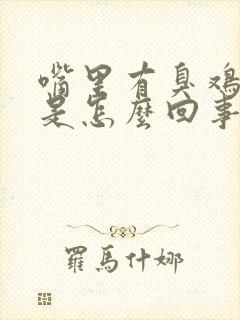 嘴里有臭鸡
是怎麼回事
羅馬什娜